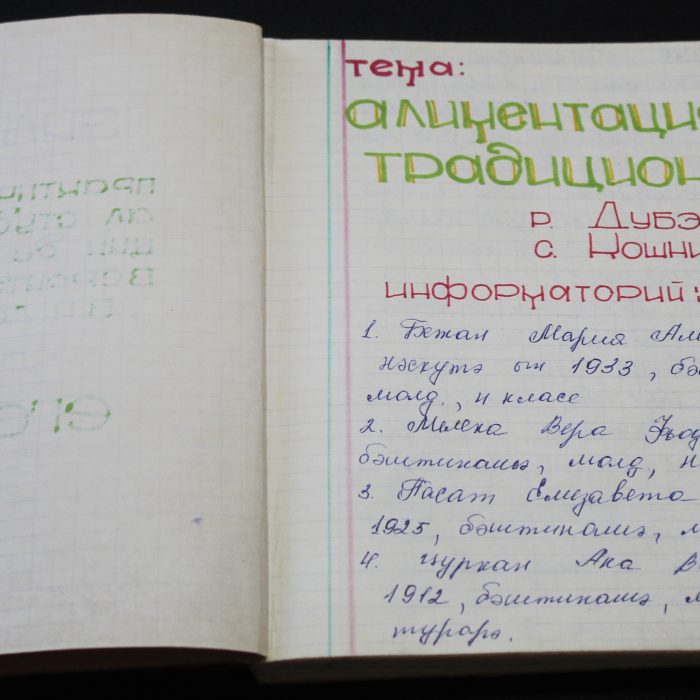 тема:
алиментация
традицион
р. Дубэ
с. Кошни
информаторий:
1. Бежан Мария Али
нэскутэ ын 1933, бэ
молд., 4 класе
2. Мелека Вера Фьод
бэштинашэ, молд, н
3. Пасат Елизавета
1925, бэштинашэ, м
4. Цуркан Ана В
1912, бэштинашэ, м
турарэ.